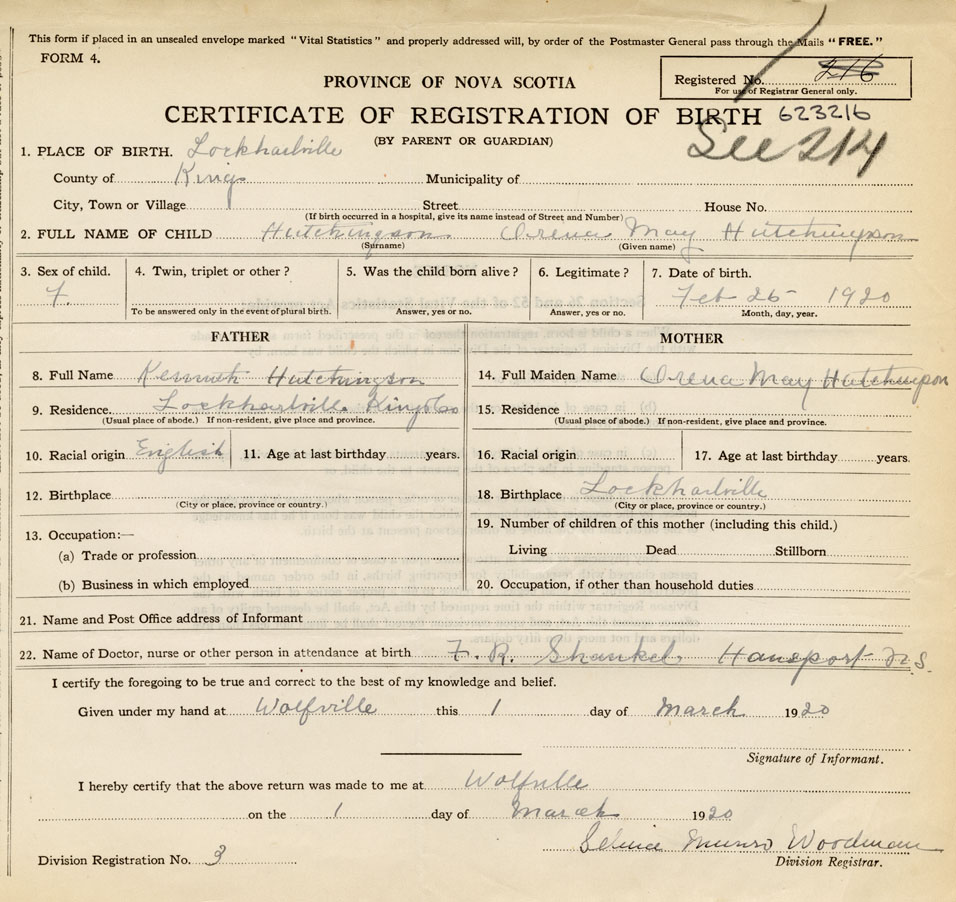 This form if placed in an unsealed envelope marked "Vital Statistics" and properly addressed will, by order of the Postmaster General pass through the Mails "FREE."
FORM 4.
PROVINCE OF NOVA SCOTIA
Registered No. 216
For use of Registrar General only.
CERTIFICATE OF REGISTRATION OF BIRTH 623216
(BY PARENT OR GUARDIAN)
See 214
1. PLACE OF BIRTH. Lockhartville
County of Kings Municipality of
City, Town or Village Street House No.
(If birth occurred in a hospital, give its name instead of Street and Number)
2. FULL NAME OF CHILD Hutchingson Orena May Hutchingson
(Surname) (Given name)
3. Sex of child. 4. Twin, triplet or other? 5. Was the child born alive? 6. Legitimate? 7. Date of birth.
F. Feb 26 1920
To be answered only in the event of plural birth. Answer, yes or no. Answer, yes or no. Month, day, year.
FATHER MOTHER
8. Full Name Kenneth Hutchingson 14. Full Maiden Name Orena May Hutchingson
9. Residence. Lockhartville Kings Co 15. Residence
(Usual place of abode.) If non-resident, give place and province. (Usual place of abode.) If non-resident, give place and province.
10. Racial origin English 11. Age at last birthday years. 16. Racial origin 17. Age at last birthday years.
12. Birthplace 18. Birthplace Lockhartville
(City or place, province or country.) (City or place, province or country.)
13. Occupation:— 19. Number of children of this mother (including this child.)
(a) Trade or profession Living Dead Stillborn
(b) Business in which employed 20. Occupation, if other than household duties
21. Name and Post Office address of Informant
22. Name of Doctor, nurse or other person in attendance at birth F. R. Shankel Hansport N.S.
I certify the foregoing to be true and correct to the best of my knowledge and belief.
Given under my hand at Wolfville this 1 day of March 1920
Signature of Informant.
I hereby certify that the above return was made to me at Wolfville
on the 1 day of March 1920
Munro Woodman
Division Registration No. 3 Division Registrar.